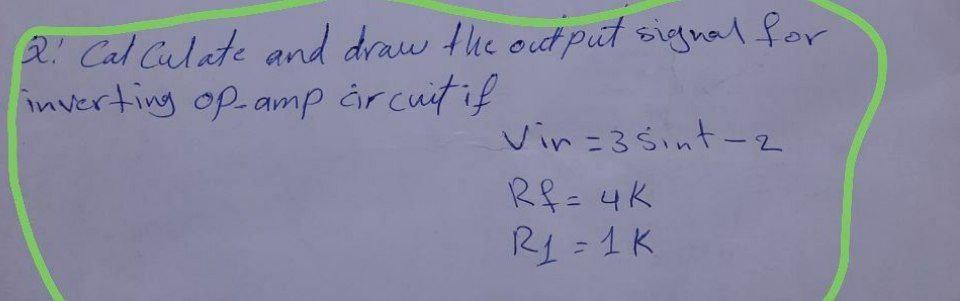 Q: Calculate and draw the output signal for
inverting op-amp circuit if
Vin = 3 sint - 2
Rf = 4K
R1 = 1K